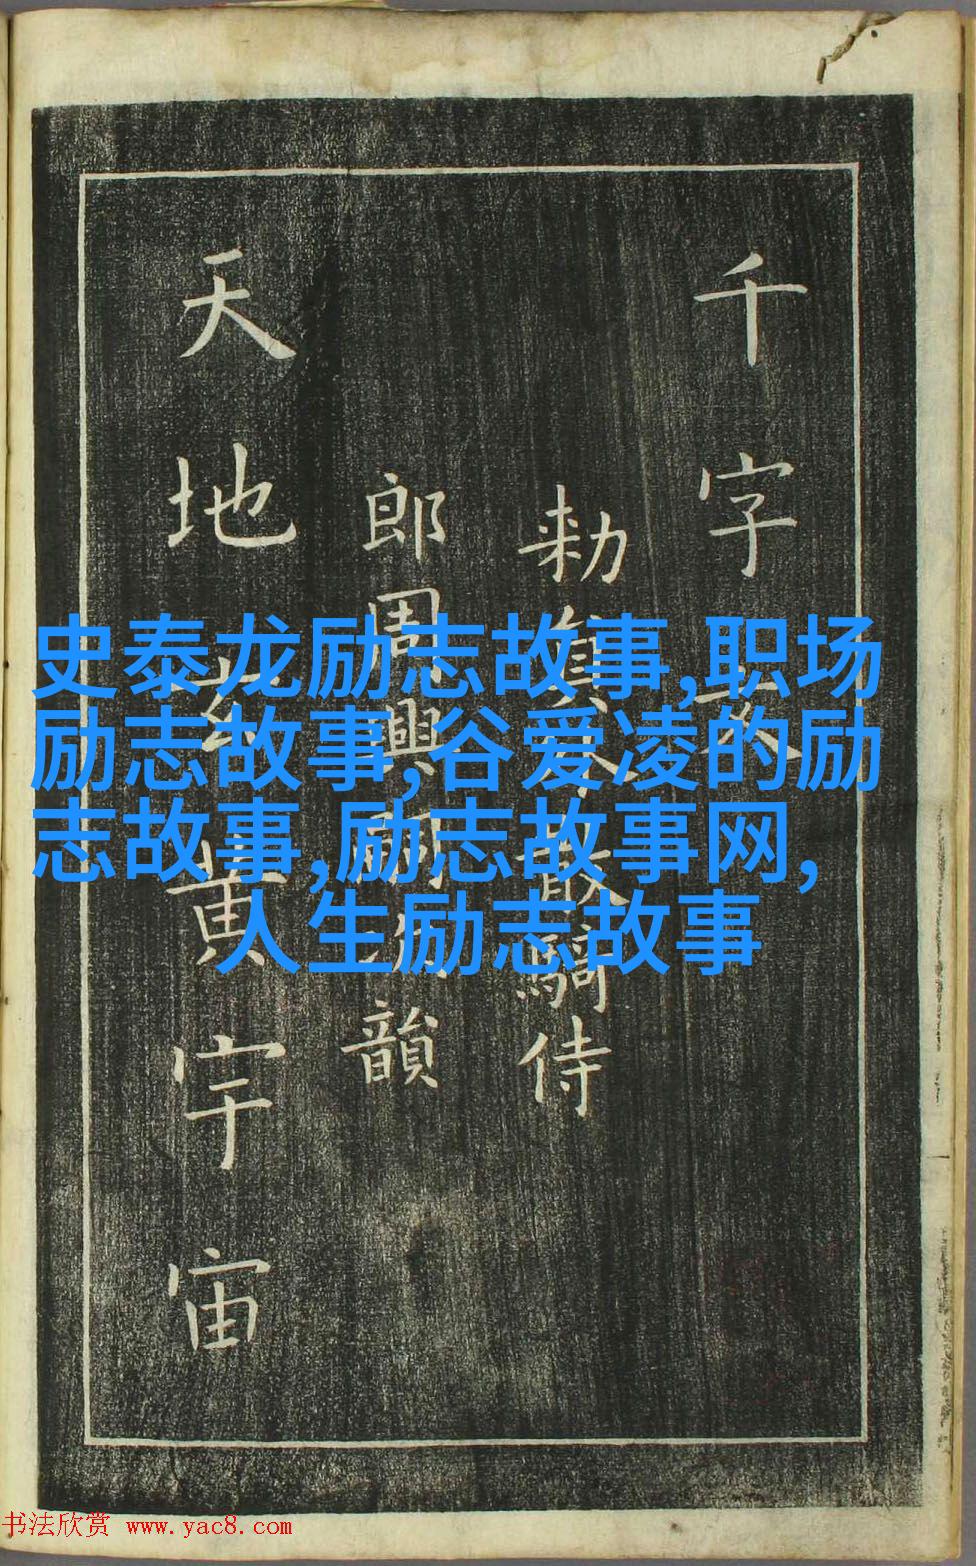 千字文
勑員外散騎侍
郎周興嗣次韻
天地玄黄宇宙
史泰龙励志故事,职场
励志故事,谷爱凌的励
志故事,励志故事网,
人生励志故事
书法欣赏 www.yac8.com